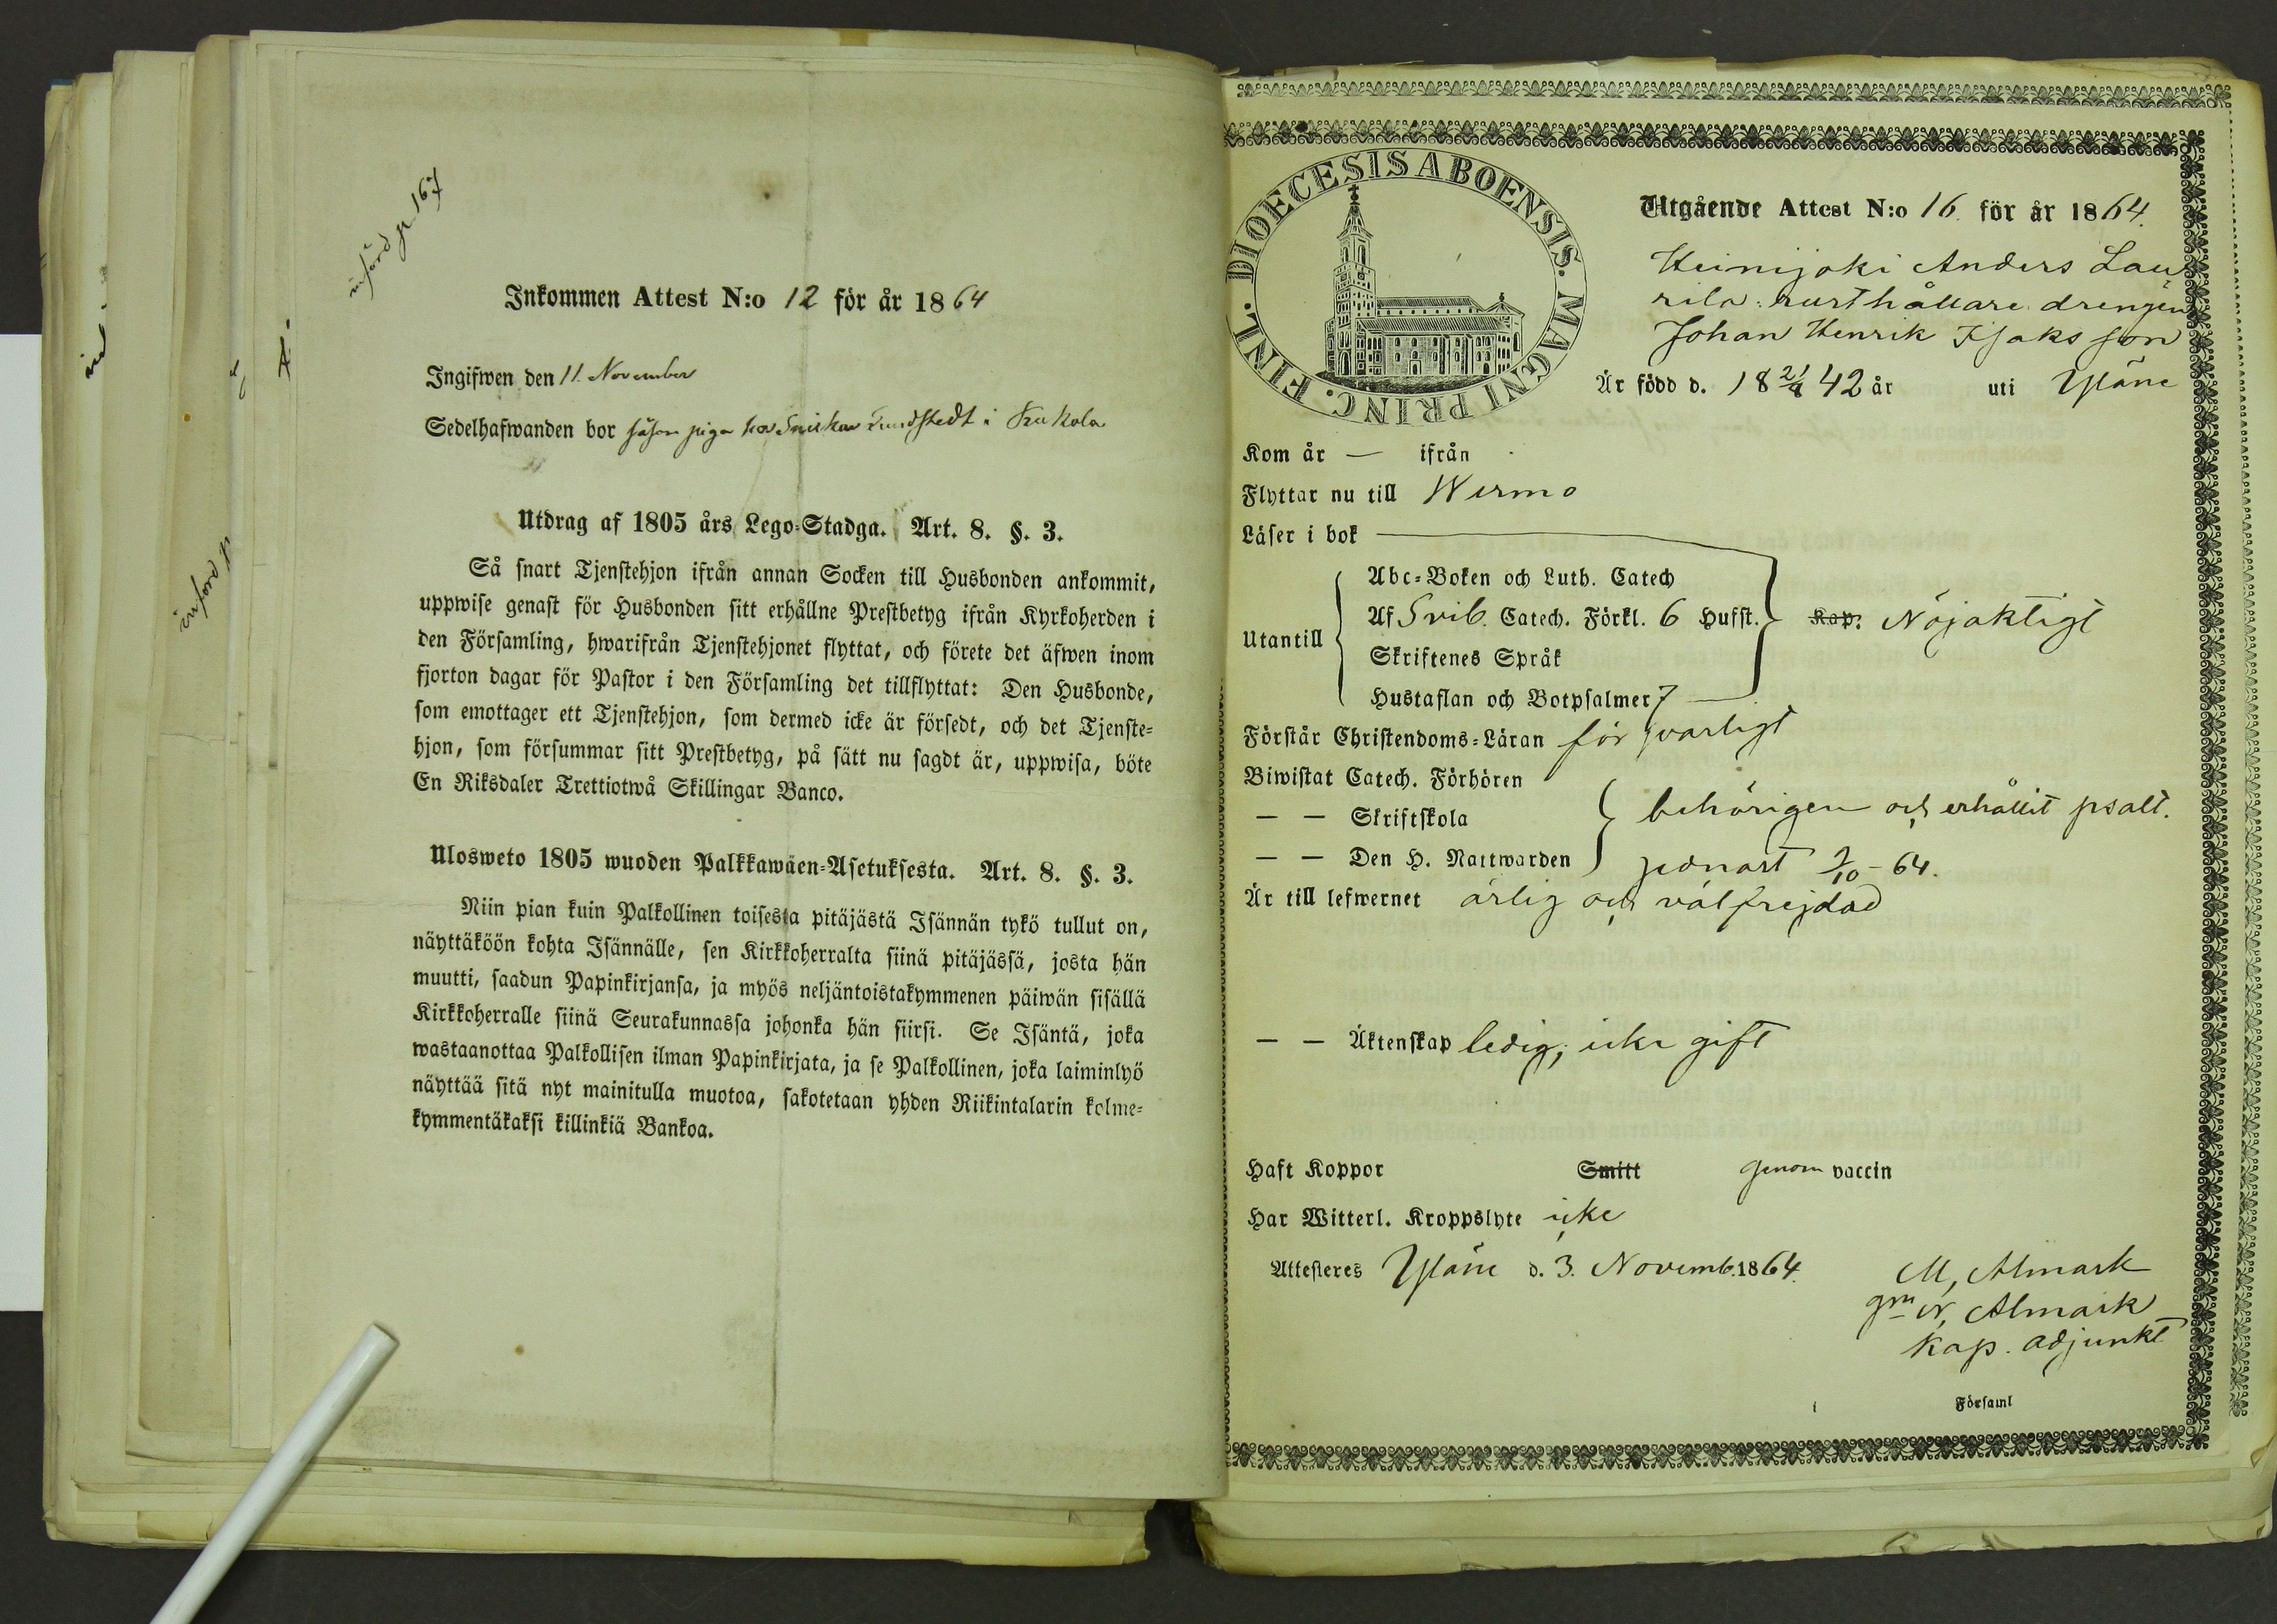 införd p 167
Inkommen Attest N:o 12 för år 1864
Ingifwen den 11. November
Sedelhafwanden bor såsom piga hos Snickar Sundstedt i Kukola
Utdrag af 1805 års Lego-Stadga. Art. 8. §. 3.
Så snart Tjenstehjon ifrån annan Socken till Husbonden ankommit,
uppwise genast för Husbonden sitt erhållne Prestbetyg ifrån Kyrkoherden i
den Församling, hwarifrån Tjenstehjonet flyttat, och förete det äfwen inom
fjorton dagar för Pastor i den Församling det tillflyttat: Den Husbonde,
som emottager ett Tjenstehjon, som dermed icke är försedt, och det Tjenste-
hjon, som försummar sitt Prestbetyg, på sätt nu sagdt är, uppwisa, böte
En Riksdaler Trettiotwå Skillingar Banco.
Ulosweto 1805 wuoden Palkkawäen-Asetuksesta. Art. 8. §. 3.
Niin pian kuin Palkollinen toisesta pitäjästä Isännän tykö tullut on,
näyttäköön kohta Isännälle, sen Kirkkoherralta siinä pitäjässä, josta hän
muutti, saadun Papinkirjansa, ja myös neljäntoistakymmenen päiwän sisällä
Kirkkoherralle siinä Seurakunnassa johonka hän siirsi. Se Isäntä, joka
wastaanottaa Palkollisen ilman Papinkirjata, ja se Palkollinen, joka laiminlyö
näyttää sitä nyt mainitulla muotoa, sakotetaan yhden Riikintalarin kolme-
kymmentäkaksi killinkiä Bankoa.
införd p
FINL. DIOECESIS ABOENSIS. MAGNI PRINC.
Utgående Attest N:o 16. för år 1864.
Heinijoki Anders Lau-
rila rusthållare drengen
Johan Henrik Isaksson
Är född d. 18 21/9 42 år uti Yläne
Kom år — ifrån
Flyttar nu till Wirmo
Läser i bok
Utantill
Abc-Boken och Luth. Catech
Af Svib. Catech. Förkl. 6 Hufst. Kap. Nöjaktigt
Skriftenes Språk
Hustaflan och Botpsalmer 7
Förstår Christendoms-Läran försvarligt
Biwistat Catech. Förhören
— — Skriftskola behörigen och erhållit psalt.
— — Den H. Nattwarden senast 2/10 - 64.
Är till lefwernet ärlig och välfrejdad
— — Äktenskap ledig; icke gift
Haft Koppor Smitt genom vaccin
Har Witterl. Kroppslyte icke
Attesteres Yläne d. 3. Novemb. 1864.
M, Almark
gm N, Almark
Kap. adjunkt
i Församl